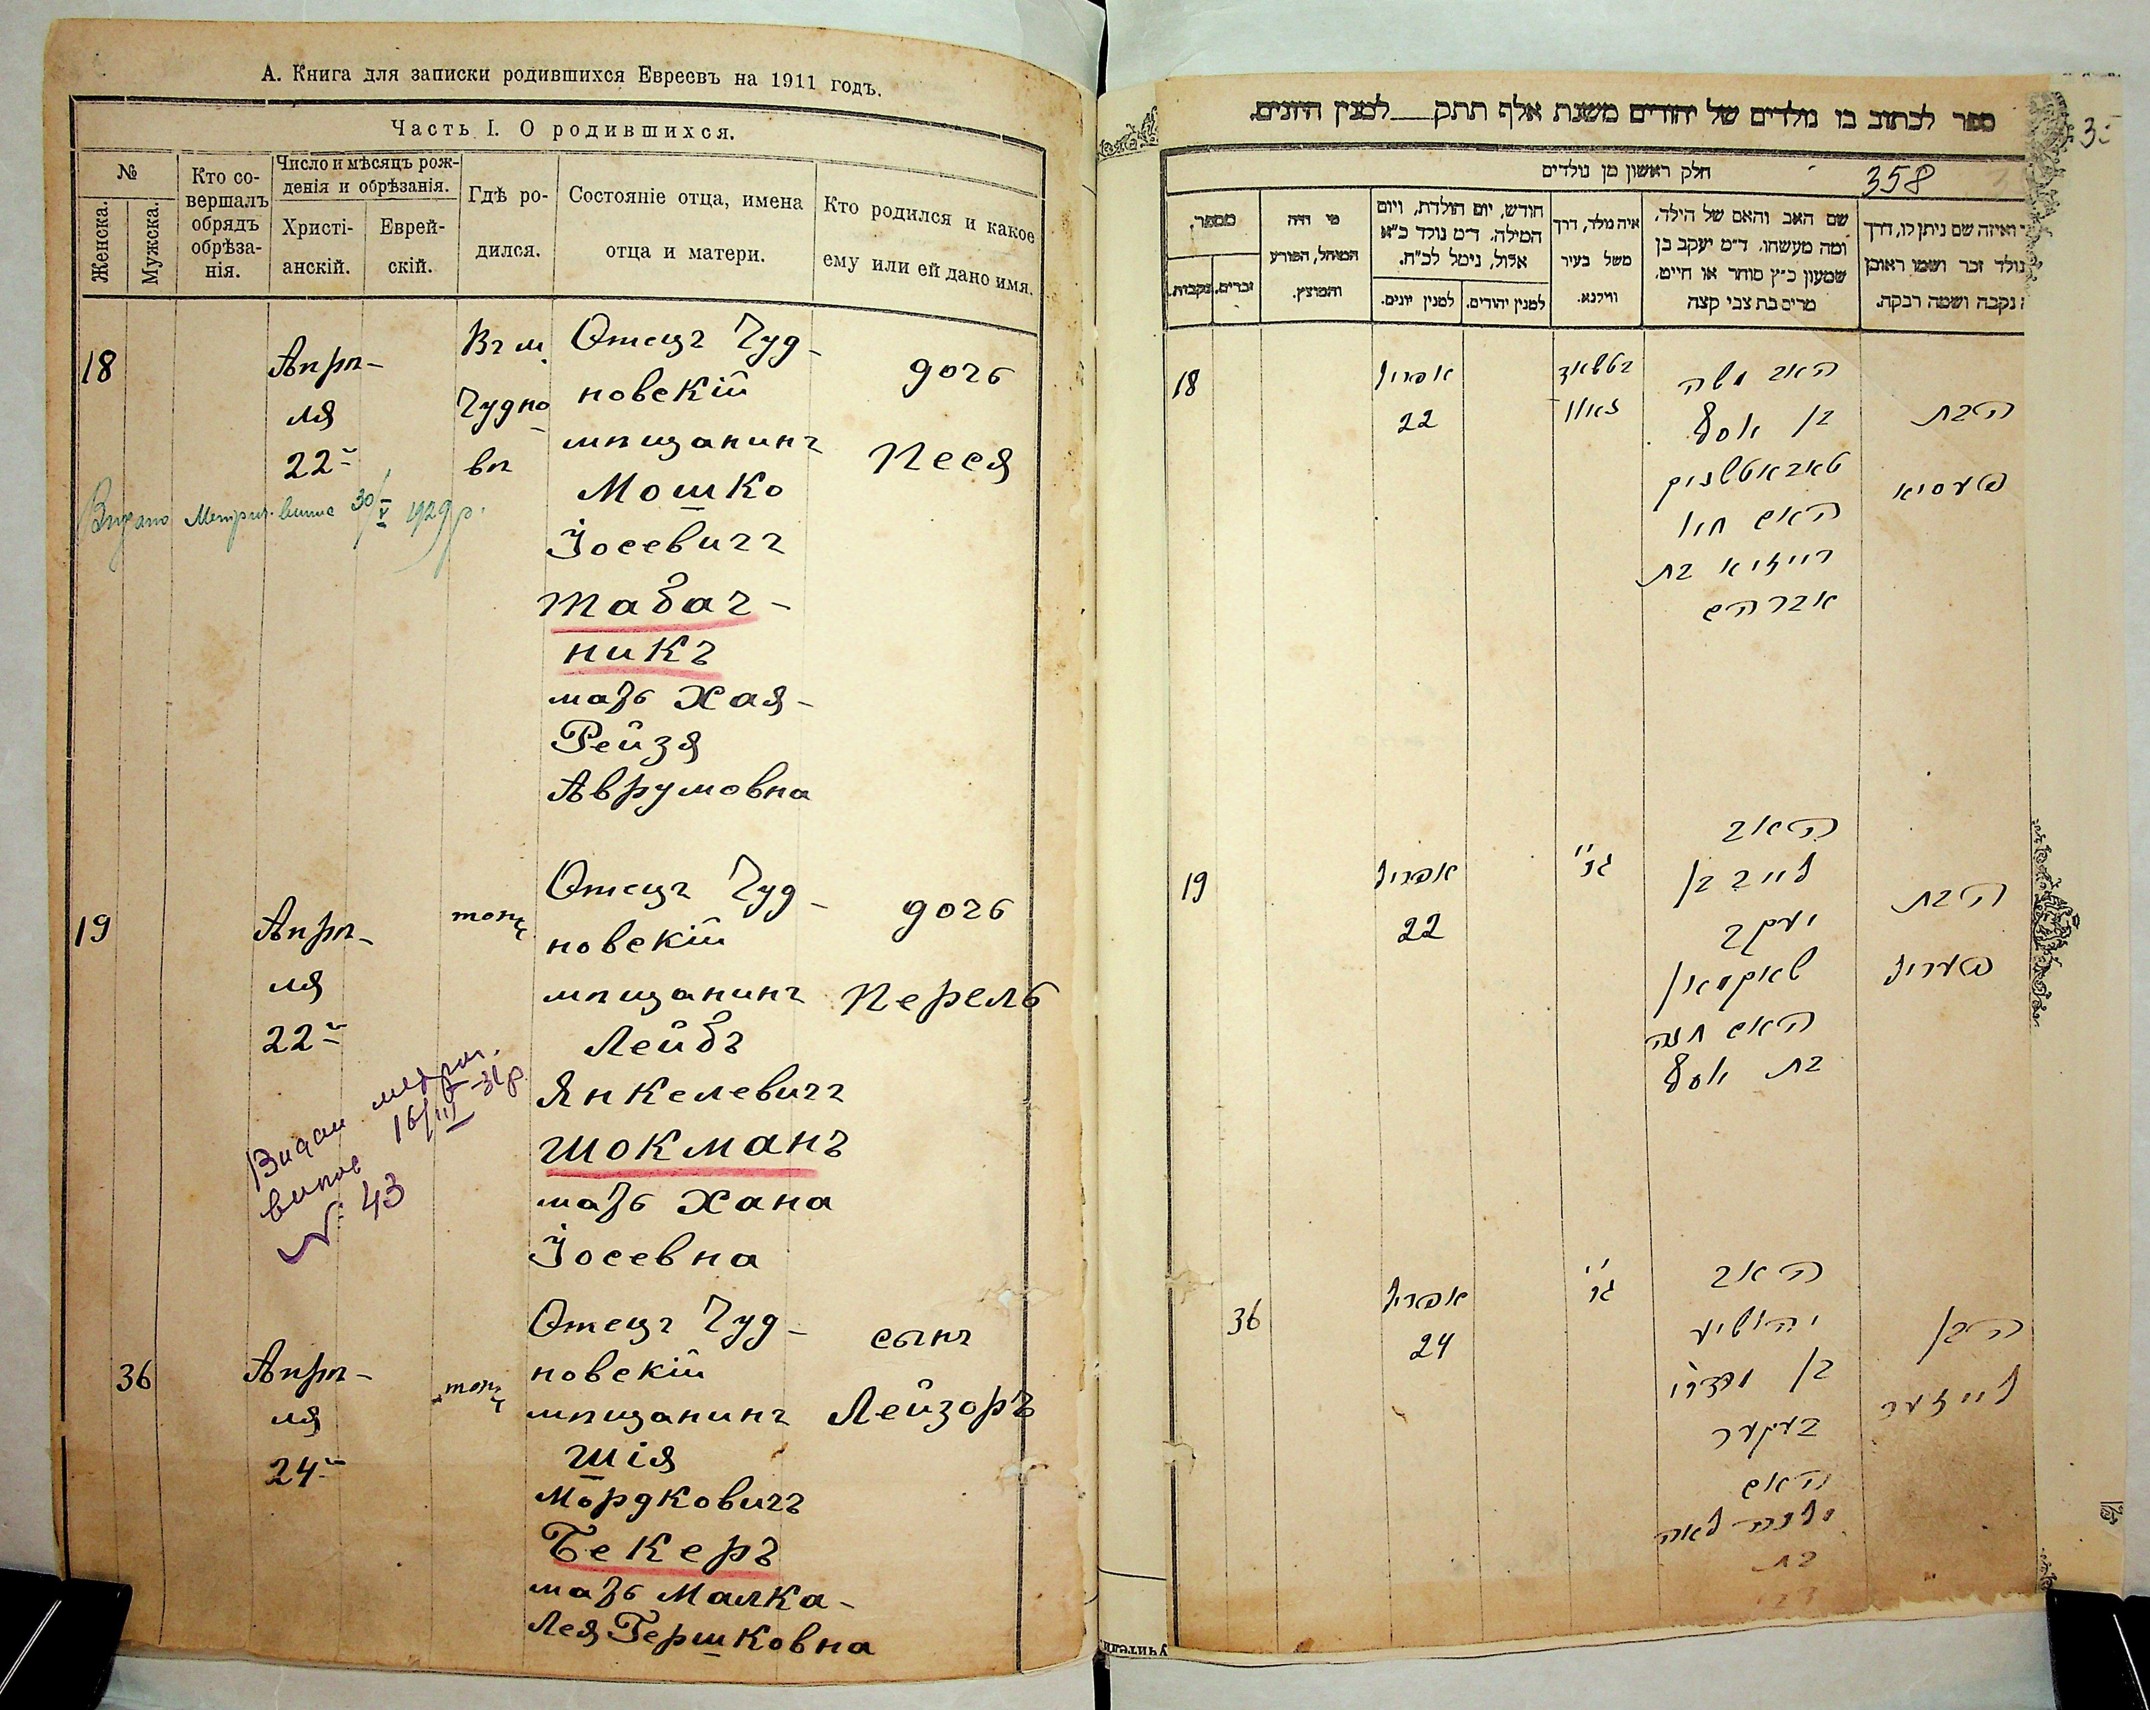 А. Книга для записки родившихся Евреевъ на 1911 годъ.
Часть I. О родившихся.
№
Женска.
Мужска.
Кто со-
вершалъ
обрядъ
обрѣза-
нія.
Число и мѣсяцъ рож-
денія и обрѣзанія.
Христі-
анскій.
Еврей-
скій.
Гдѣ ро-
дился.
Состояніе отца, имена
отца и матери.
Кто родился и какое
ему или ей дано имя.
18
Апрѣ-
ля
22
Въ м.
Чудно-
вѣ
Отецъ Чуд-
новскій
мѣщанинъ
Мошко
Іосевичъ
Табач-
никъ
мать Хая-
Рейзя
Аврумовна
дочь
Песя
Видано Метрич. 30/V 1929 р.
19
Апрѣ-
ля
22
тоже
Отецъ Чуд-
новскій
мѣщанинъ
Лейбъ
Янкелевичъ
Шокманъ
мать Хана
Іосевна
дочь
Перель
Видан метрич.
випис 16/III-31р.
№ 43
36
Апрѣ-
ля
24
тоже
Отецъ Чуд-
новскій
мѣщанинъ
Шія
Мордковичъ
Бекеръ
мать Малка-
Лея Гершковна
сынъ
Лейзоръ
ספר לכתוב בו נולדים של יהודים משנת אלף תתק למנין היונים.
חלק ראשון מן נולדים
358
מספר.
נקבות.
זכרים.
מי היה
המוהל, הפורע
והמוצץ.
חודש, יום הולדת, ויום
המילה. ד״מ נולד כ״א
אלול, נימל לכ״ח.
למנין יונים.
למנין יהודים.
איה נולד, דרך
משל בעיר
ווילנא.
שם האב והאם של הילד,
ומה מעשהו. ד״מ יעקב בן
שמעון כ״ץ סוחר או חייט,
מרים בת צבי קצה
ואיזה שם ניתן לו, דרך
נולד זכר ושמו ראובן
נקבה ושמה רבקה.
18
אפריל
22
האב משה
בן יוסף
טאבאטשניק
האם חיה
רייזיא בת
אברהם
הבת
פעסיא
19
אפריל
22
האב
לייב בן
יעקב
שאקמאן
האם חנה
בת יוסף
הבת
פעריל
36
אפריל
24
האב
יהושיע
בן מרדכי
בעקער
האם
מלכה לאה
בת
הבן
לייזער